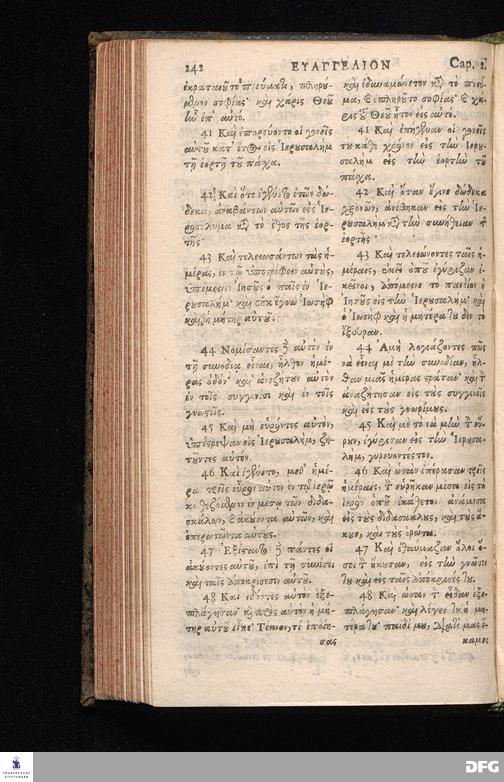 242 ΕΥΑΓΓΕΛΙΟΝ Cap. 2.
ἐκραταιοῦτο πνεύματι, πληρού-
μενον σοφίας· καὶ χάρις Θεοῦ
ἦν ἐπ' αὐτό.
41 Καὶ ἐπορεύοντο οἱ γονεῖς
αὐτοῦ κατ' ἔτος εἰς Ἱερουσαλὴμ
τῇ ἑορτῇ τοῦ πάσχα.
42 Καὶ ὅτε ἐγένετο ἐτῶν δώ-
δεκα, ἀναβάντων αὐτῶν εἰς Ἱε-
ροσόλυμα κατὰ τὸ ἔθος τῆς ἑορ-
τῆς·
43 Καὶ τελειωσάντων τὰς ἡ-
μέρας, ἐν τῷ ὑποστρέφειν αὐτοὺς,
ὑπέμεινεν Ἰησοῦς ὁ παῖς ἐν Ἱε-
ρουσαλήμ· καὶ οὐκ ἔγνω Ἰωσὴφ
καὶ ἡ μήτηρ αὐτοῦ.
44 Νομίσαντες δὲ αὐτὸν ἐν
τῇ συνοδίᾳ εἶναι, ἦλθον ἡμέ-
ρας ὁδόν· καὶ ἀνεζήτουν αὐτὸν
ἐν τοῖς συγγενέσι καὶ ἐν τοῖς
γνωστοῖς.
45 Καὶ μὴ εὑρόντες αὐτὸν,
ὑπέστρεψαν εἰς Ἱερουσαλὴμ, ζη-
τοῦντες αὐτόν.
46 Καὶ ἐγένετο, μεθ' ἡμέ-
ρας τρεῖς εὗρον αὐτὸν ἐν τῷ ἱερῷ
καθεζόμενον ἐν μέσῳ τῶν διδα-
σκάλων, καὶ ἀκούοντα αὐτῶν, καὶ
ἐπερωτῶντα αὐτούς.
47 Ἐξίσταντο δὲ πάντες οἱ
ἀκούοντες αὐτοῦ, ἐπὶ τῇ συνέσει
καὶ ταῖς ἀποκρίσεσιν αὐτοῦ.
48 Καὶ ἰδόντες αὐτὸν ἐξε-
πλάγησαν· καὶ πρὸς αὐτὸν ἡ μή-
τηρ αὐτοῦ εἶπε· Τέκνον, τί ἐποίη-
σας
καὶ ἐδυναμόνετον κατὰ τὸ πνεῦ-
μα, καὶ ἐπληροῦτο σοφίας· καὶ χά-
ρις τοῦ Θεοῦ ἦτον εἰς αὐτό.
41 Καὶ ἐπήγαιναν οἱ γονεῖς
του κάθε χρόνον εἰς τὴν Ἱερου-
σαλὴμ εἰς τὴν ἑορτὴν τοῦ
πάσχα.
42 Καὶ ὅταν ἔγινε δώδεκα
χρονῶν, ἀνέβηκαν εἰς τὴν Ἱε-
ρουσαλὴμ κατὰ τὴν συνήθειαν τῆς
ἑορτῆς·
43 Καὶ τελειώνοντες ταῖς ἡ-
μέραις, ἐκεῖ ὁποῦ ἐγύριζαν ἐ-
κεῖνοι, ἀπόμεινε τὸ παιδίον ὁ
Ἰησοῦς εἰς τὴν Ἱερουσαλήμ· καὶ
ὁ Ἰωσὴφ καὶ ἡ μητέρα του δὲν τὸ
ἤξευραν.
44 Ἀμὴ λογιάζοντες πῶς
νὰ εἶναι μὲ τὴν συνοδίαν, ἦλ-
θαν μιᾶς ἡμέρας στράταν· καὶ τὸν
ἀναζήτησαν εἰς τοὺς συγγενεῖς
καὶ εἰς τοὺς γνωρίμους.
45 Καὶ μὲ τὸ νὰ μὴν τὸν εὕ-
ρουν, ἐγύρισαν εἰς τὴν Ἱερουσα-
λὴμ, γυρεύοντές τον.
46 Καὶ ὡσὰν ἐπέρασαν τρεῖς
ἡμέραις, τὸν εὕρηκαν μέσα εἰς τὸ
ἱερὸν ὁποῦ ἐκάθετον ἀνάμεσα
εἰς τοὺς διδασκάλους, καὶ τοὺς ἄ-
κουε, καὶ τοὺς ἐρώτα.
47 Καὶ ἐθαύμαζαν ὅλοι ὅ-
σοι τὸν ἤκουσαν, εἰς τὴν γνῶσίν
του καὶ εἰς ταῖς ἀπόκρισές του.
48 Καὶ ὡσὰν τὸν εἶδαν ἐξε-
πλάγησαν· καὶ λέγει του ἡ μη-
τέρα του· παιδί μου, διατί μᾶς ἔ-
καμες
FRANCKESCHE
STIFTUNGEN
DFG